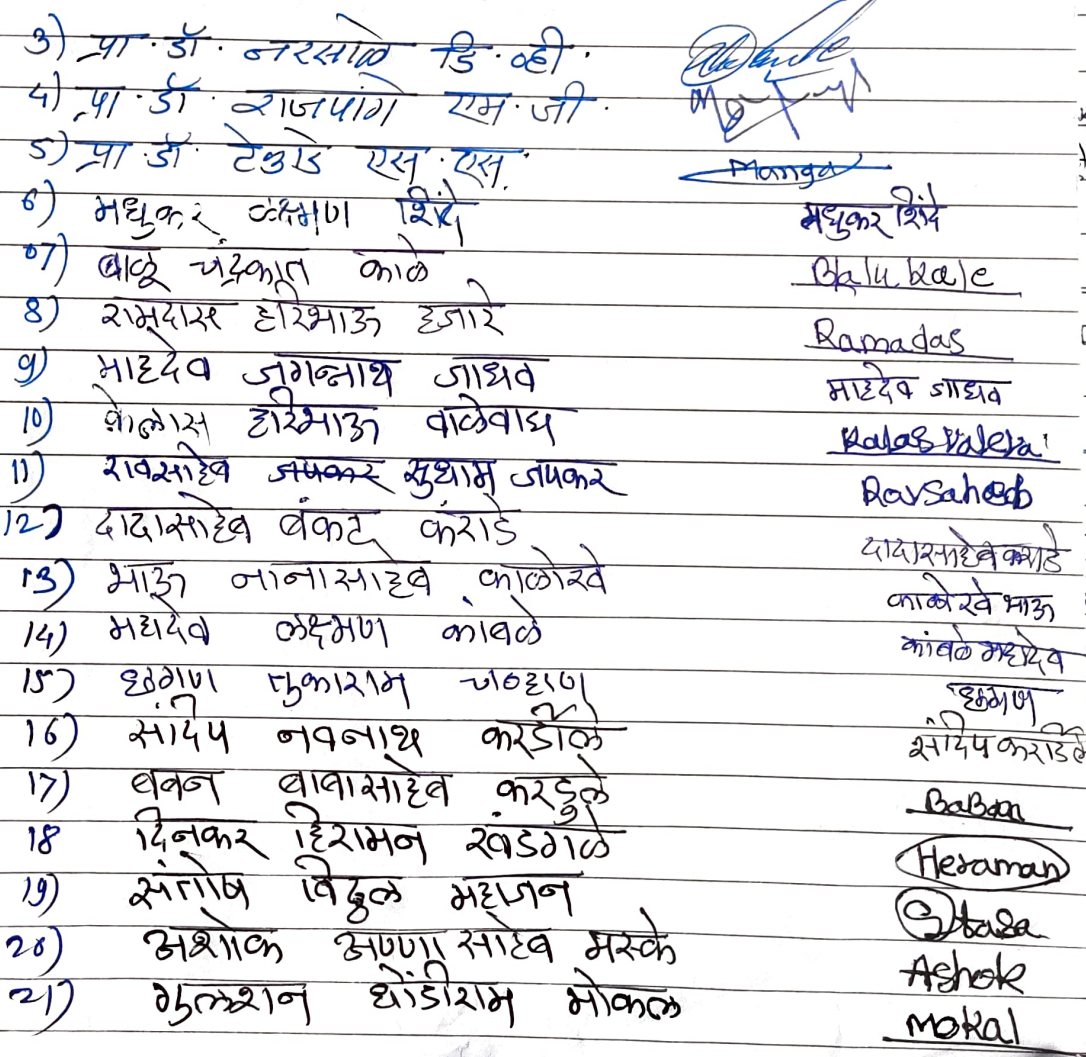 3) प्रा. डॉ. नरसाळे डि. व्ही.
4) प्रा. डॉ. राजपांगे एम. जी.
5) प्रा. डॉ. टेकाडे एस. एस.
6) मधुकर लक्ष्मण शिंदे मधुकर शिंदे
07) बाळू चंद्रकांत काळे Balu kale
8) रामदास हरिभाऊ हजारे Ramadas
9) माहदेव जगन्नाथ जाधव माहदेव जाधव
10) कैलास हरिभाऊ वाळेवाघ
11) रावसाहेब जपकर सुधाम जपकर Ravsaheb
12) दादासाहेब बंकट कराडे दादासाहेब कराडे
13) भाऊ नानासाहेब काळोखे काळोखे भाऊ
14) महादेव लक्ष्मण कांबळे कांबळे महादेव
15) छगण तुकाराम चव्हाण छगण
16) संदिप नवनाथ करडीले संदिप
17) बबन बाबासाहेब करडुले BaBan
18 दिनकर हिरामन खंडगळे Heraman
19) संतोष विठ्ठल महाजन
20) अशोक अण्णासाहेब मस्के Ashok
21) गुलशन धोंडीराम मोकल mokal